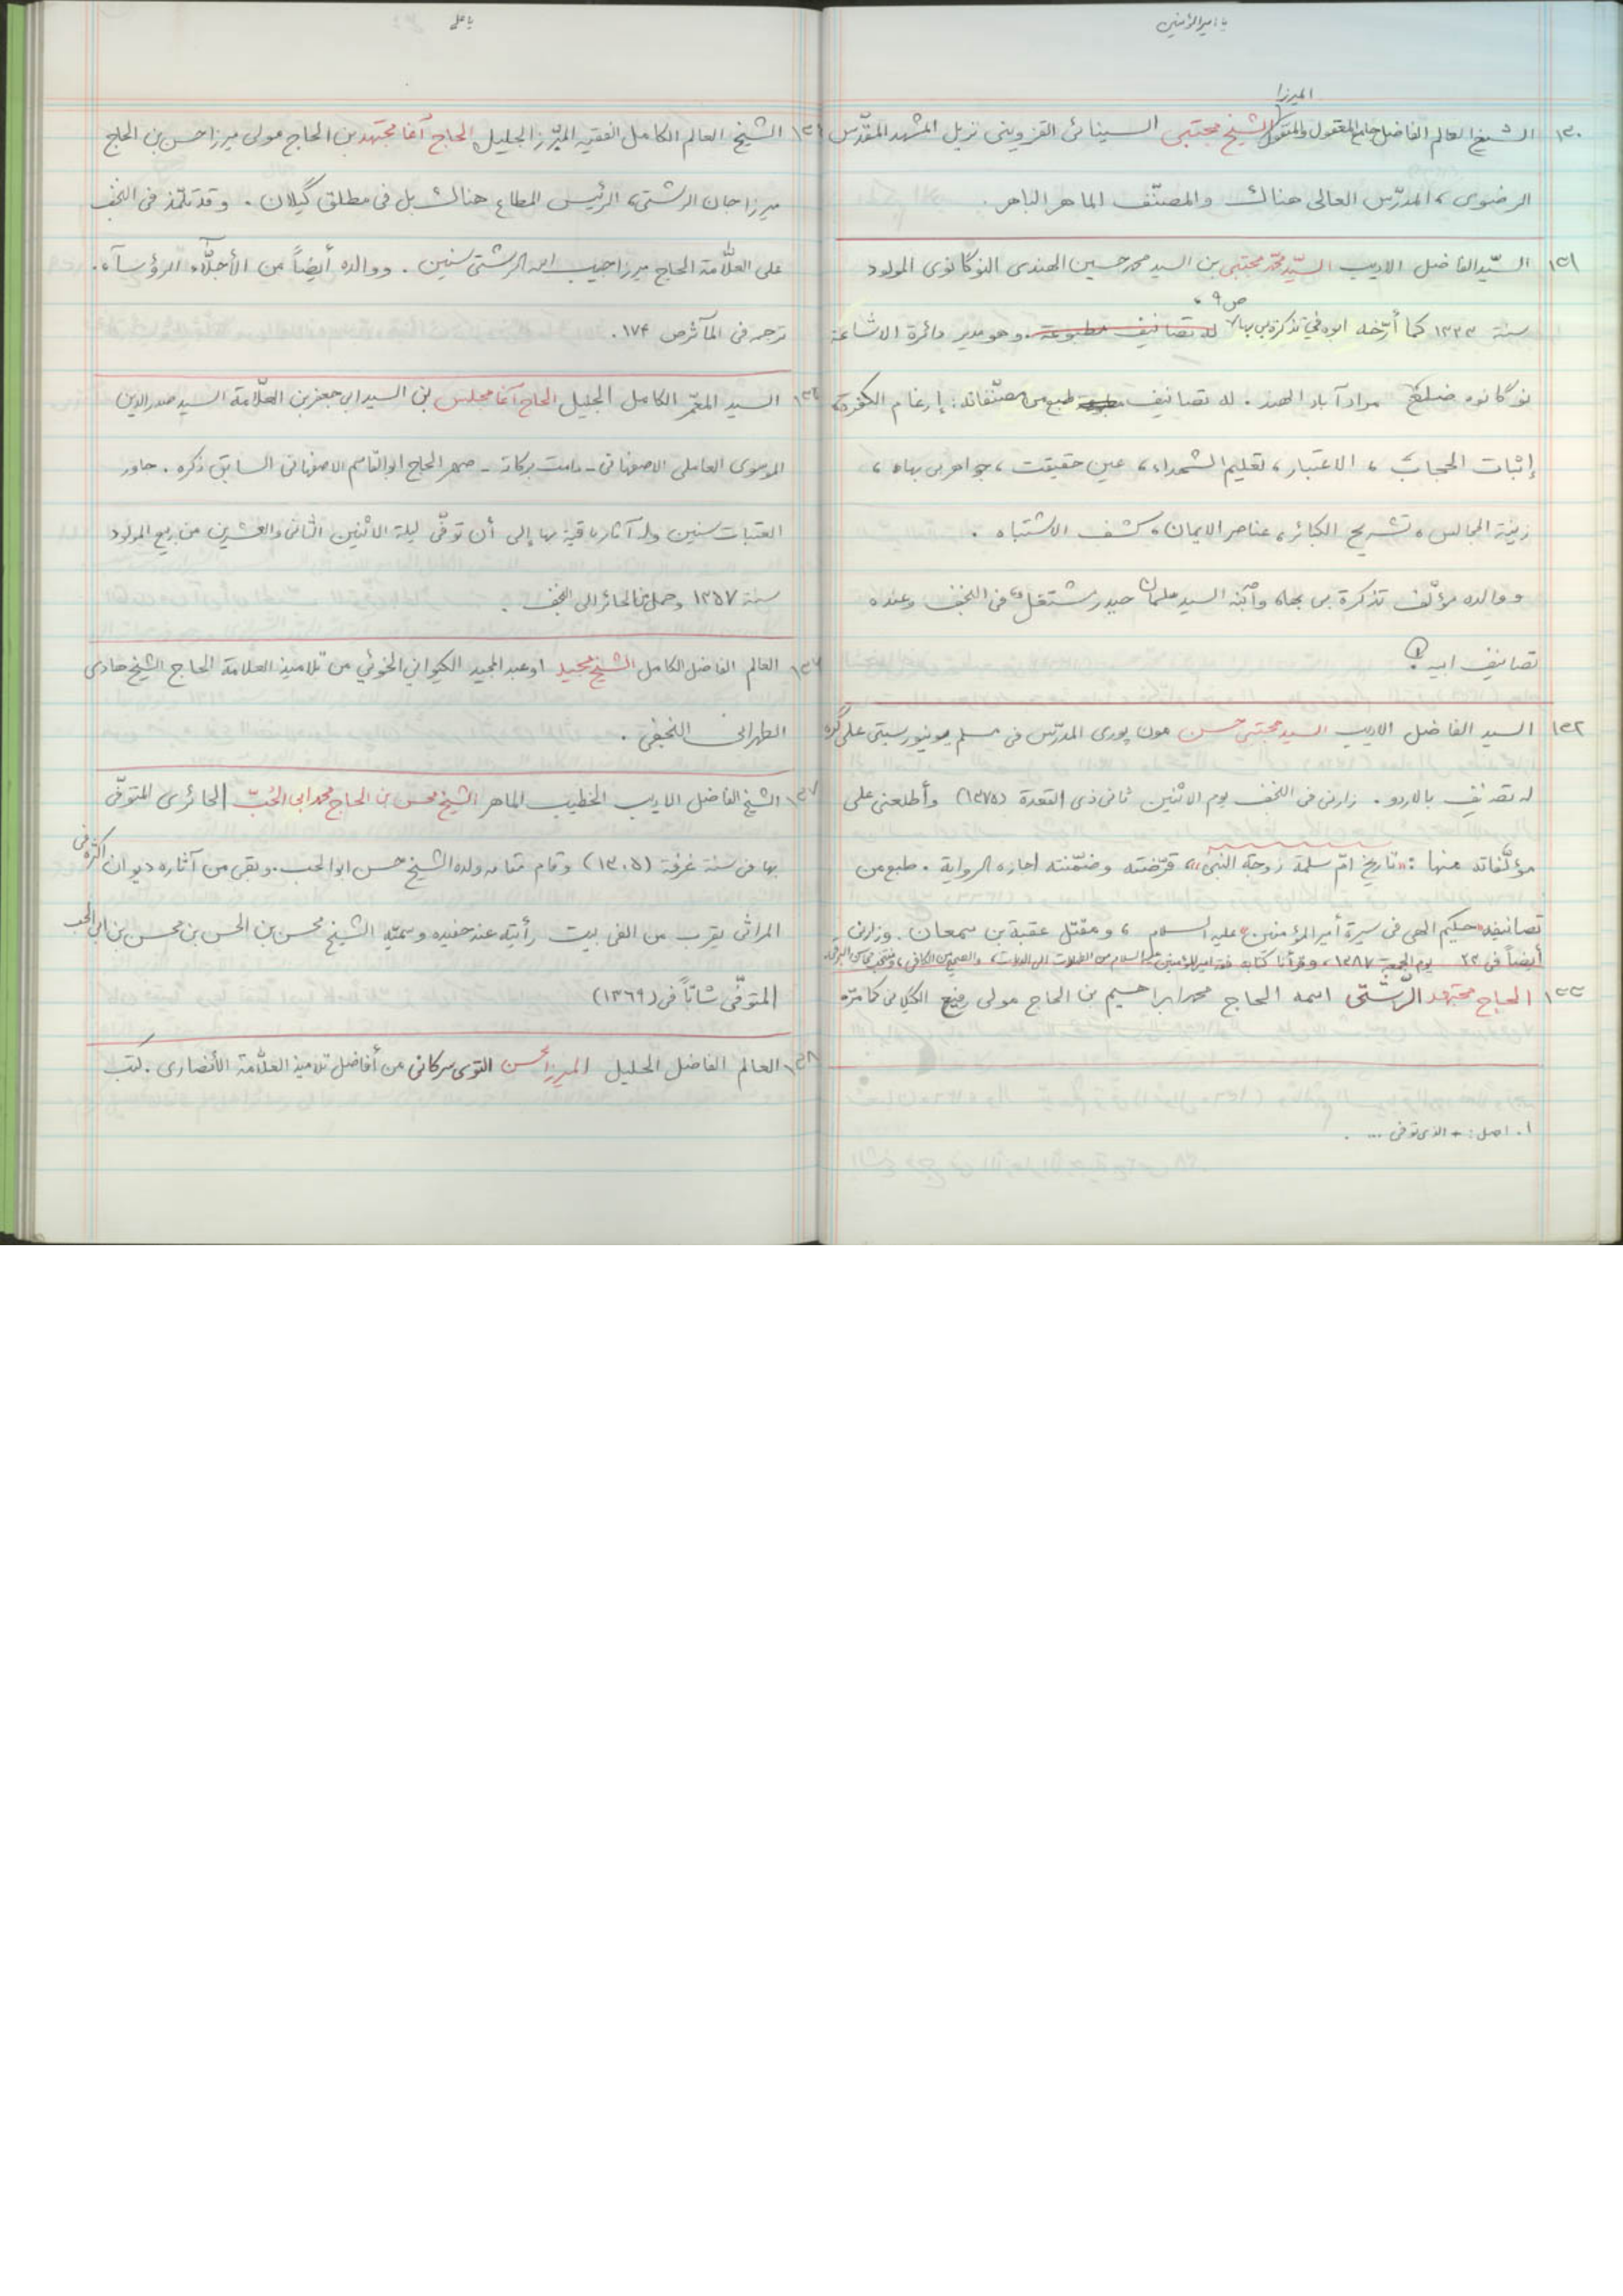 یا امیرالمؤمنین
المیرزا
۱۳۰ الشیخ العالم الفاضل جامع المعقول والمنقول الشیخ مجتبی السینائی القزوینی نزیل المشهد المقدّس
الرضوی، المدرّس العالی هناك والمصنّف الماهر الباهر.
۱۳۱ السیّد الفاضل الادیب السیّد محمّد مجتبی بن السید محمد حسین الهندی النوگانوی المولود
سنة ۱۳۲۳ کما أرّخه ابوه فی تذکرة بی بهاء ص ۹، له تصانیف مطبوعة. وهو مدیر دائرة الاشاعة
نوگانوه ضلع مرادآباد الهند. له تصانیف طبع من مصنّفاته: إرغام الکفرة،
إثبات الحجاب، الاعتبار، تعلیم الشهداء، عین حقیقت، جواهر بی بهاء،
زینة المجالس، تشریح الکبائر، عناصر الایمان، کشف الاشتباه.
ووالده مؤلّف تذکرة بی بهاء وابنه السید سلمان حیدر مشتغل فی النجف وعنده
تصانیف ابیه.
۱۳۲ السید الفاضل الادیب السید مجتبی حسن مون پوری المدرّس فی مسلم یونیورسیتی علی گره
له تصانیف بالاردو. زارنی فی النجف یوم الاثنین ثانی ذی القعدة (۱۳۷۵) وأطلعنی علی
مؤلّفاته منها: «تاریخ امّ سلمة زوجة النبی»، قرّضته وضمّنته اجازه الروایة. طبع من
تصانیفه «حکیم الهی فی سیرة أمیر المؤمنین» علیه السلام، ومقتل عقبة بن سمعان. وزارنی
أیضاً فی ۲۳ یوم الجمعة ۱۳۸۷، وقرأنا کتابه فقه امیرالمؤمنین علیه السلام من الطهارات الی الدیات، والصحیح من الکافی،
۱۳۳ الحاج مجتهد الرّشتی اسمه الحاج محمد ابراهیم بن الحاج مولی رفیع الگیلانی کما مرّ.
۱. اصل: + الذی توفی ... .
یا علی
الشیخ العالم الکامل الفقیه المبرّز الجلیل الحاج آغا مجتهد بن الحاج مولی میرزا حسن بن الحاج
میرزا جان الرشتی، الرئیس المطاع هناك بل فی مطلق گیلان. وقد تلمّذ فی النجف
علی العلّامة الحاج میرزا حبیب الله الرشتی سنین. ووالده أیضاً من الأجلّاء الرؤساء.
ترجمه فی المآثر ص ۱۷۴.
السید المعمّر الکامل الجلیل الحاج آغا مجلس بن السید ابی جعفر بن العلّامة السید صدرالدین
الموسوی العاملی الاصفهانی - دامت برکاته - صهر الحاج ابوالقاسم الاصفهانی السابق ذکره. جاور
العتبات سنین وله آثار باقیة بها إلی أن توفّی لیلة الاثنین الثانی والعشرین من ربیع المولود
سنة ۱۳۵۷ وحمل من الحائر الی النجف.
العالم الفاضل الکامل الشیخ مجید او عبد المجید الکیوانی الخوئی من تلامیذ العلامة الحاج الشیخ هادی
الطهرانی النجفی.
۱۳۷ الشیخ الفاضل الادیب الخطیب الماهر الشیخ محسن بن الحاج محمد ابی الحُبّ الحائری المتوفّی
بها فی سنة غرقة (۱۳۰۵) وقام مقامه ولده الشیخ حسن ابوالحب. وبقی من آثاره دیوان اکثره فی
المراثی یقرب من الفی بیت رأیته عند حفیده وسمیّه الشیخ محسن بن الحسن بن محسن بن ابی الحب
المتوفّی شابّاً فی (۱۳۶۹)
۱۳۸ العالم الفاضل الجلیل المیرزا محسن التوی سرکانی من أفاضل تلامیذ العلّامة الأنصاری. کتب